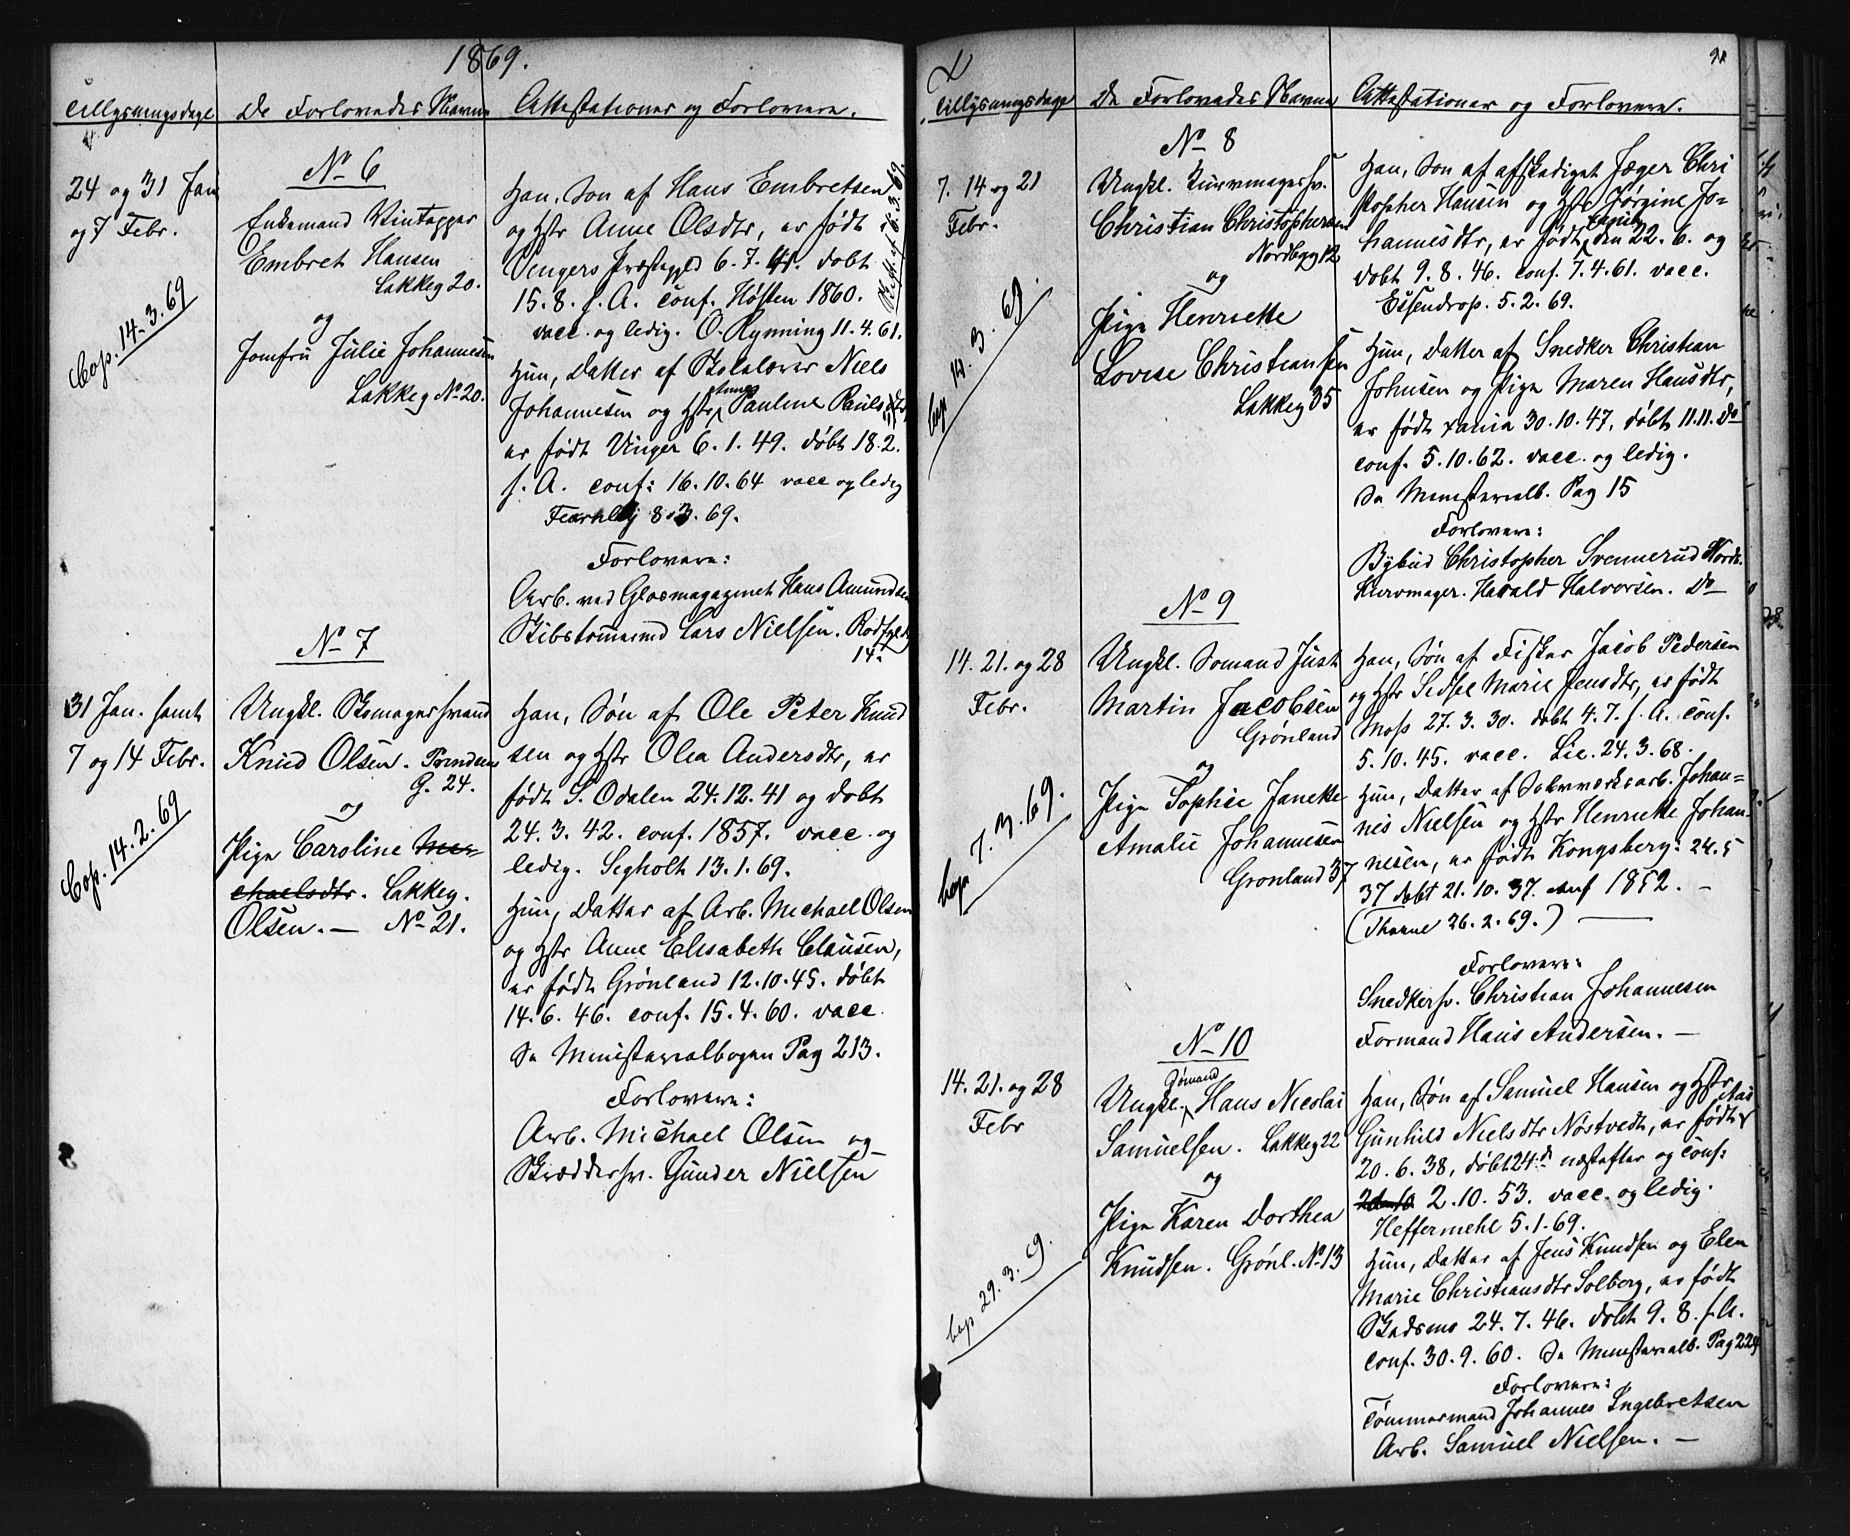 1869.
Tillysningsdage
De Forlovedes Navne
Attestationer og Forlovere.
24 og 31 Jan
og 7 Febr.
Cop. 14.3.69
No 6
Enkemand Vintapper
Embret Hansen
Lakkeg 20.
og
Jomfru Julie Johannesen
Lakkeg No 20.
Han, Søn af Hans Embretsen
og Hstr Anne Olsdtr, er født i
Vingers Præstegjed 6.7. døbt
15.8. s. A. conf. Høsten 1860.
vacc. og ledig. O. Rynning 11.4.61.
Skift. af 6.3.69.
Hun, Datter af Skolelærer Niels
Johannesen og Hstr Anne Pauline Paulsdtr
er født Vinger 6.1.49. døbt 18.2.
s. A. conf: 16.10.64 vacc og ledig
Fearnley 8.3.69.
Forlovere:
Arb. ved Glasmagazinet Hans Amundsen
Skibstømmermd Lars Nielsen. Rodfyld
14.
31 Jan. samt
7 og 14 Febr.
Cop. 14.2.69
No 7
Ungkl. Skomagersvend
Knud Olsen. Prindsens
G. 24.
og
Pige Caroline Mi-
chaelsdtr. Lakkeg.
Olsen. — No 21.
Han, Søn af Ole Peter Knud
sen og Hstr Olea Andersdtr, er
født S. Odalen 24.12.41 og døbt
24.3.42. conf. 1857. vacc. og
ledig. Segholt 13.1.69.
Hun, Datter af Arb. Michael Olsen
og Hstr Anne Elisabeth Clausen,
er født Grønland 12.10.45. døbt
14.6.46. conf. 15.4.60. vacc.
Se Ministerialbogen Pag 213.
Forlovere:
Arb. Michael Olsen og
Skræddersv. Gunder Nielsen
Tillysningsdage
De Forlovedes Navne
Attestationer og Forlovere.
7. 14 og 21
Febr.
Cop 14.3.69
No 8
Ungkl. Kurvmagersv.
Christian Christophersen
Nordbyg 12
og
Pige Henriette
Lovise Christiansen
Lakkeg 35
Han, Søn af afskediget Jæger Chri
stopher Hansen og Hstr Jørgine Jo-
hannesdtr, er født Xania den 22.6. og
døbt 9.8.46. conf. 7.4.61. vacc.
Essendrop. 5.2.69.
Hun, Datter af Snedker Christian
Johnsen og Pige Maren Hansdtr,
er født Xania 30.10.47, døbt 11.11. Do
conf. 5.10.62. vacc. og ledig.
Se Ministerialb. Pag 15
Forlovere:
Bybud Christopher Svennerud Nordb.
Kurvmager. Harald Halvorsen. Do
14. 21. og 28
Febr.
Cop 7.3.69.
No 9
Ungkl. Sømand Just
Martin Jacobsen
Grønland
og
Pige Sophie Janette
Amalie Johannesen
Grønland 37
Han, Søn af Fisker Jacob Pedersen
og Hstr Sidsel Marie Jensdtr, er født
Moss 27.3.30. døbt 4.7. s. A. conf.
5.10.45. vacc. Lie. 24.3.68.
Hun, Datter af Sølvværksarb. Johan-
nes Nielsen og Hstr Henriette Johan-
nesen, er født Kongsberg: 24.5
37 døbt 21.10.37. conf 1852. —
(Thorne 26.2.69.) —
Forlovere:
Snedkersv. Christian Johannesen
Formand Hans Andersen. —
14. 21. og 28
Febr
Cop 29.3.69.
No 10
Sømand
Ungkl. Hans Nicolai
Samuelsen. Lakkeg 22
og
Pige Karen Dorthea
Knudsen. Grønl. No 13
Han, Søn af Samuel Hansen og Hstr
Gunhild Nielsdtr Nøstvedt, er født i Aas
20.6.38, døbt 24de næstefter og conf:
2.10.53. vacc. og ledig.
Heffermehl 5.1.69.
Hun, Datter af Jens Knudsen og Elen
Marie Christiansdtr Solberg, er født
Skedsmo 24.7.46. døbt 9.8. s. A.
conf. 30.9.60. Se Ministerialb. Pag 224
Forlovere:
Tømmermand Johannes Ingebretsen
Arb. Samuel Nielsen. —